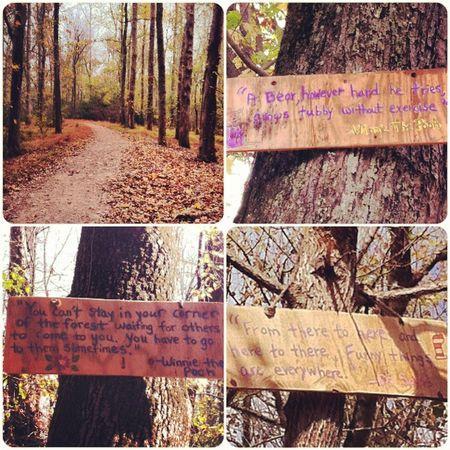 "A Bear, however hard he tries,
grows tubby without exercise"
-Winnie The Pooh
"You can't stay in your corner
of the forest waiting for others
to come to you. You have to go
to them sometimes."
-Winnie the
Pooh
"From there to here and
here to there, Funny things
are everywhere."
-Dr. Seuss